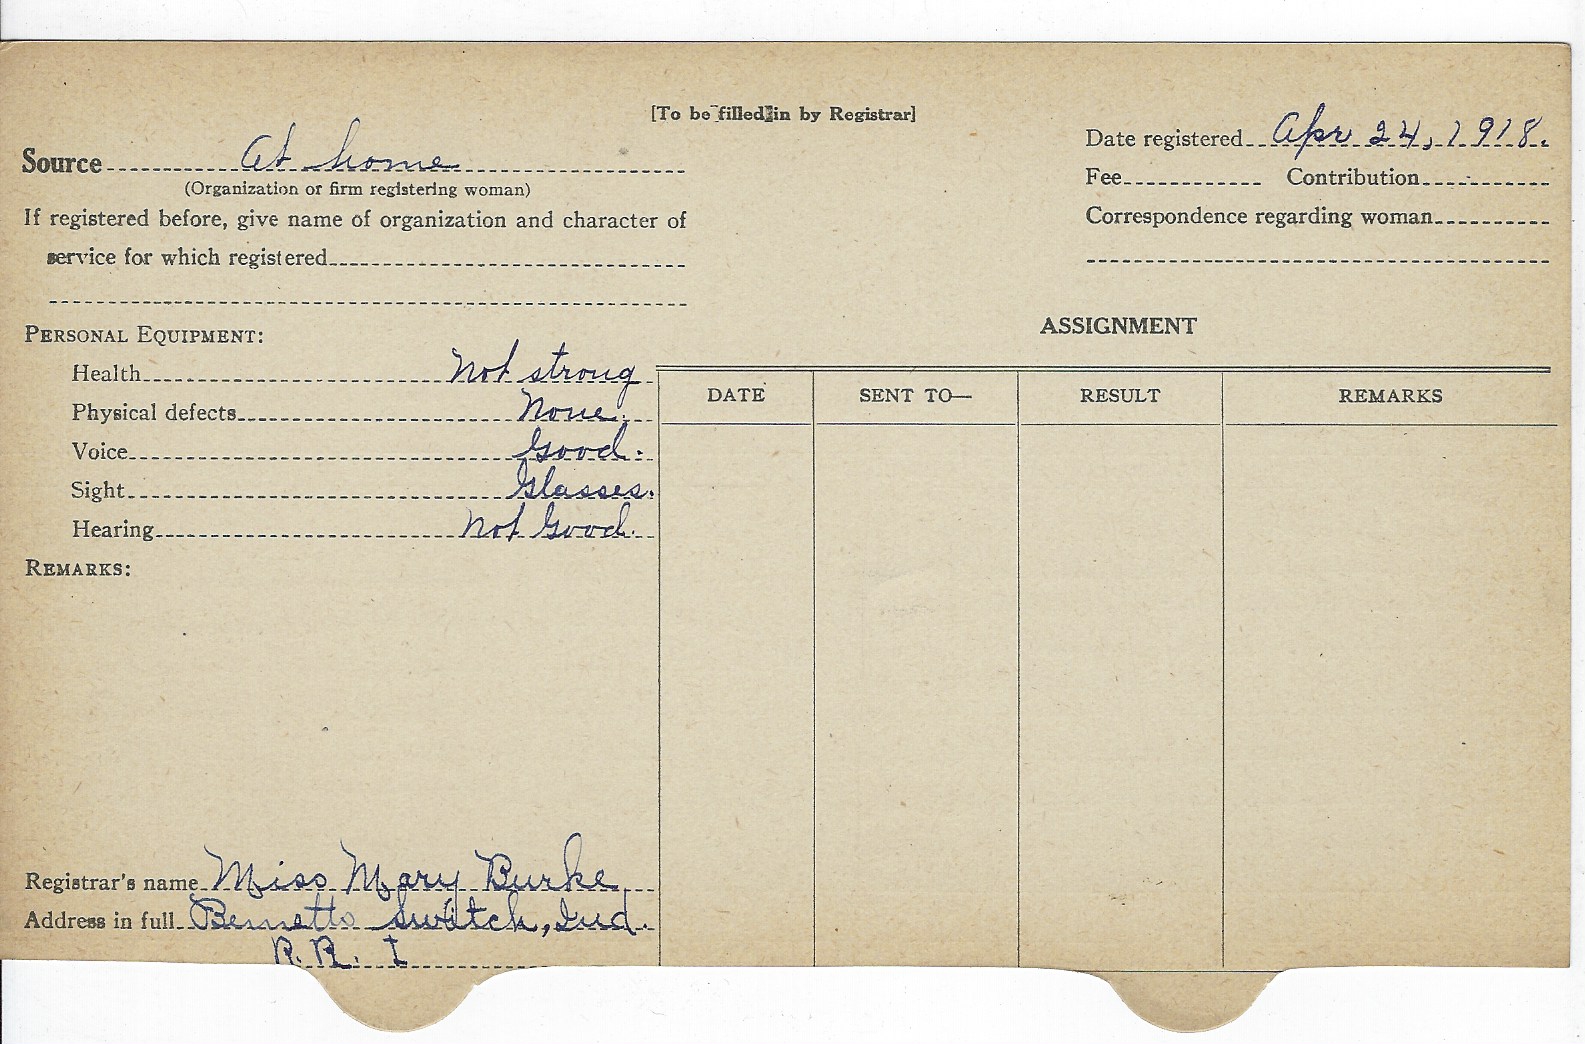 [To be filled in by Registrar]
Source At home
(Organization or firm registering woman)
If registered before, give name of organization and character of
service for which registered
Date registered Apr 24, 1918.
Fee Contribution
Correspondence regarding woman
PERSONAL EQUIPMENT:
Health Not strong
Physical defects None.
Voice Good.
Sight Glasses.
Hearing Not Good.
REMARKS:
ASSIGNMENT
DATE SENT TO— RESULT REMARKS
Registrar's name Miss Mary Burke
Address in full Bennetts Switch, Ind.
R. R. I